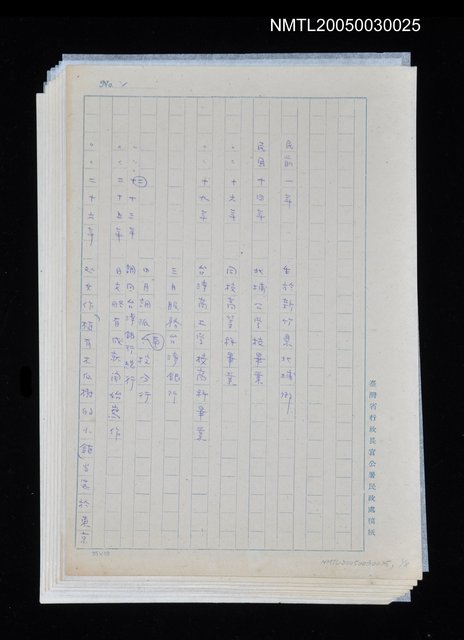 NMTL20050030025
No. 1
臺灣省行政長官公署民政處稿紙
民前一年 生於新竹縣北埔鄉
民國十四年 北埔公學校畢業
〃 〃 十六年 同校高等科畢業
〃 〃 十九年 台灣商工學校商科畢業
三月服務台灣銀行
四月調派 分行
〃 〃 二十三年 調回台灣銀行總行
〃 〃 二十五年 開始寫作
〃 〃 二十六年 處女作「植有木瓜樹的小鎮」當選於東京
NMTL20050030025, 1/8